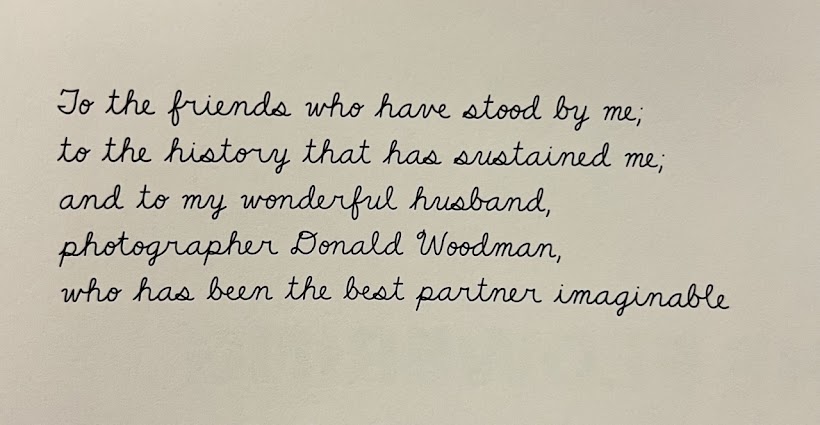 To the friends who have stood by me;
to the history that has sustained me;
and to my wonderful husband,
photographer Donald Woodman,
who has been the best partner imaginable